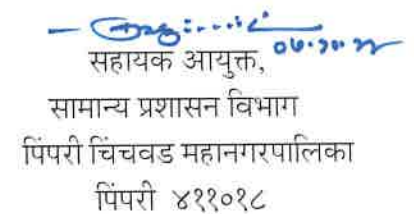 सहायक आयुक्त,
सामान्य प्रशासन विभाग
पिंपरी चिंचवड महानगरपालिका
पिंपरी ४११०१८